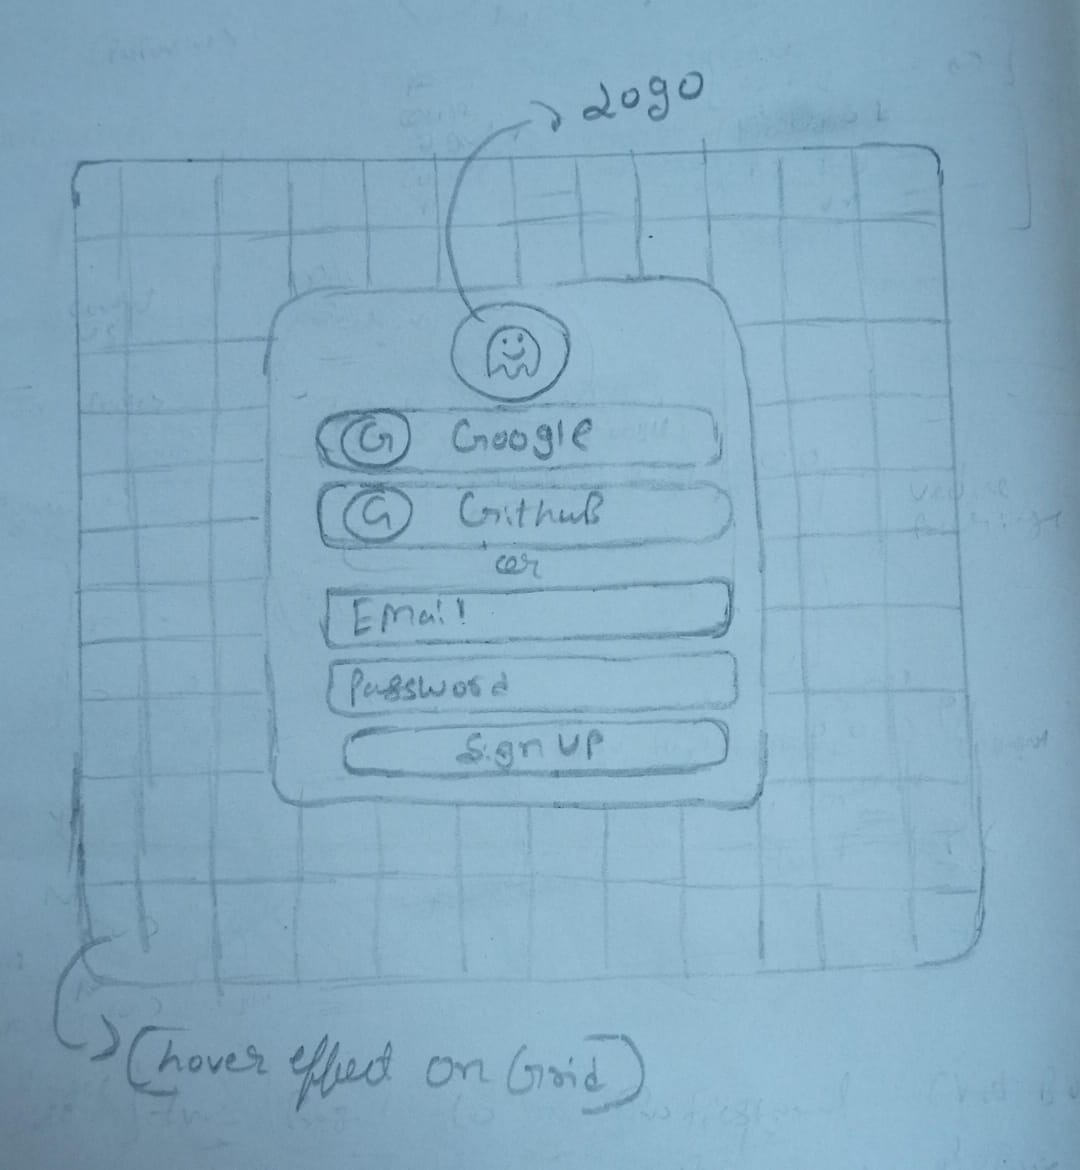 Logo
G Google
G Github
or
Email
Password
Sign UP
(hover effect on Grid)